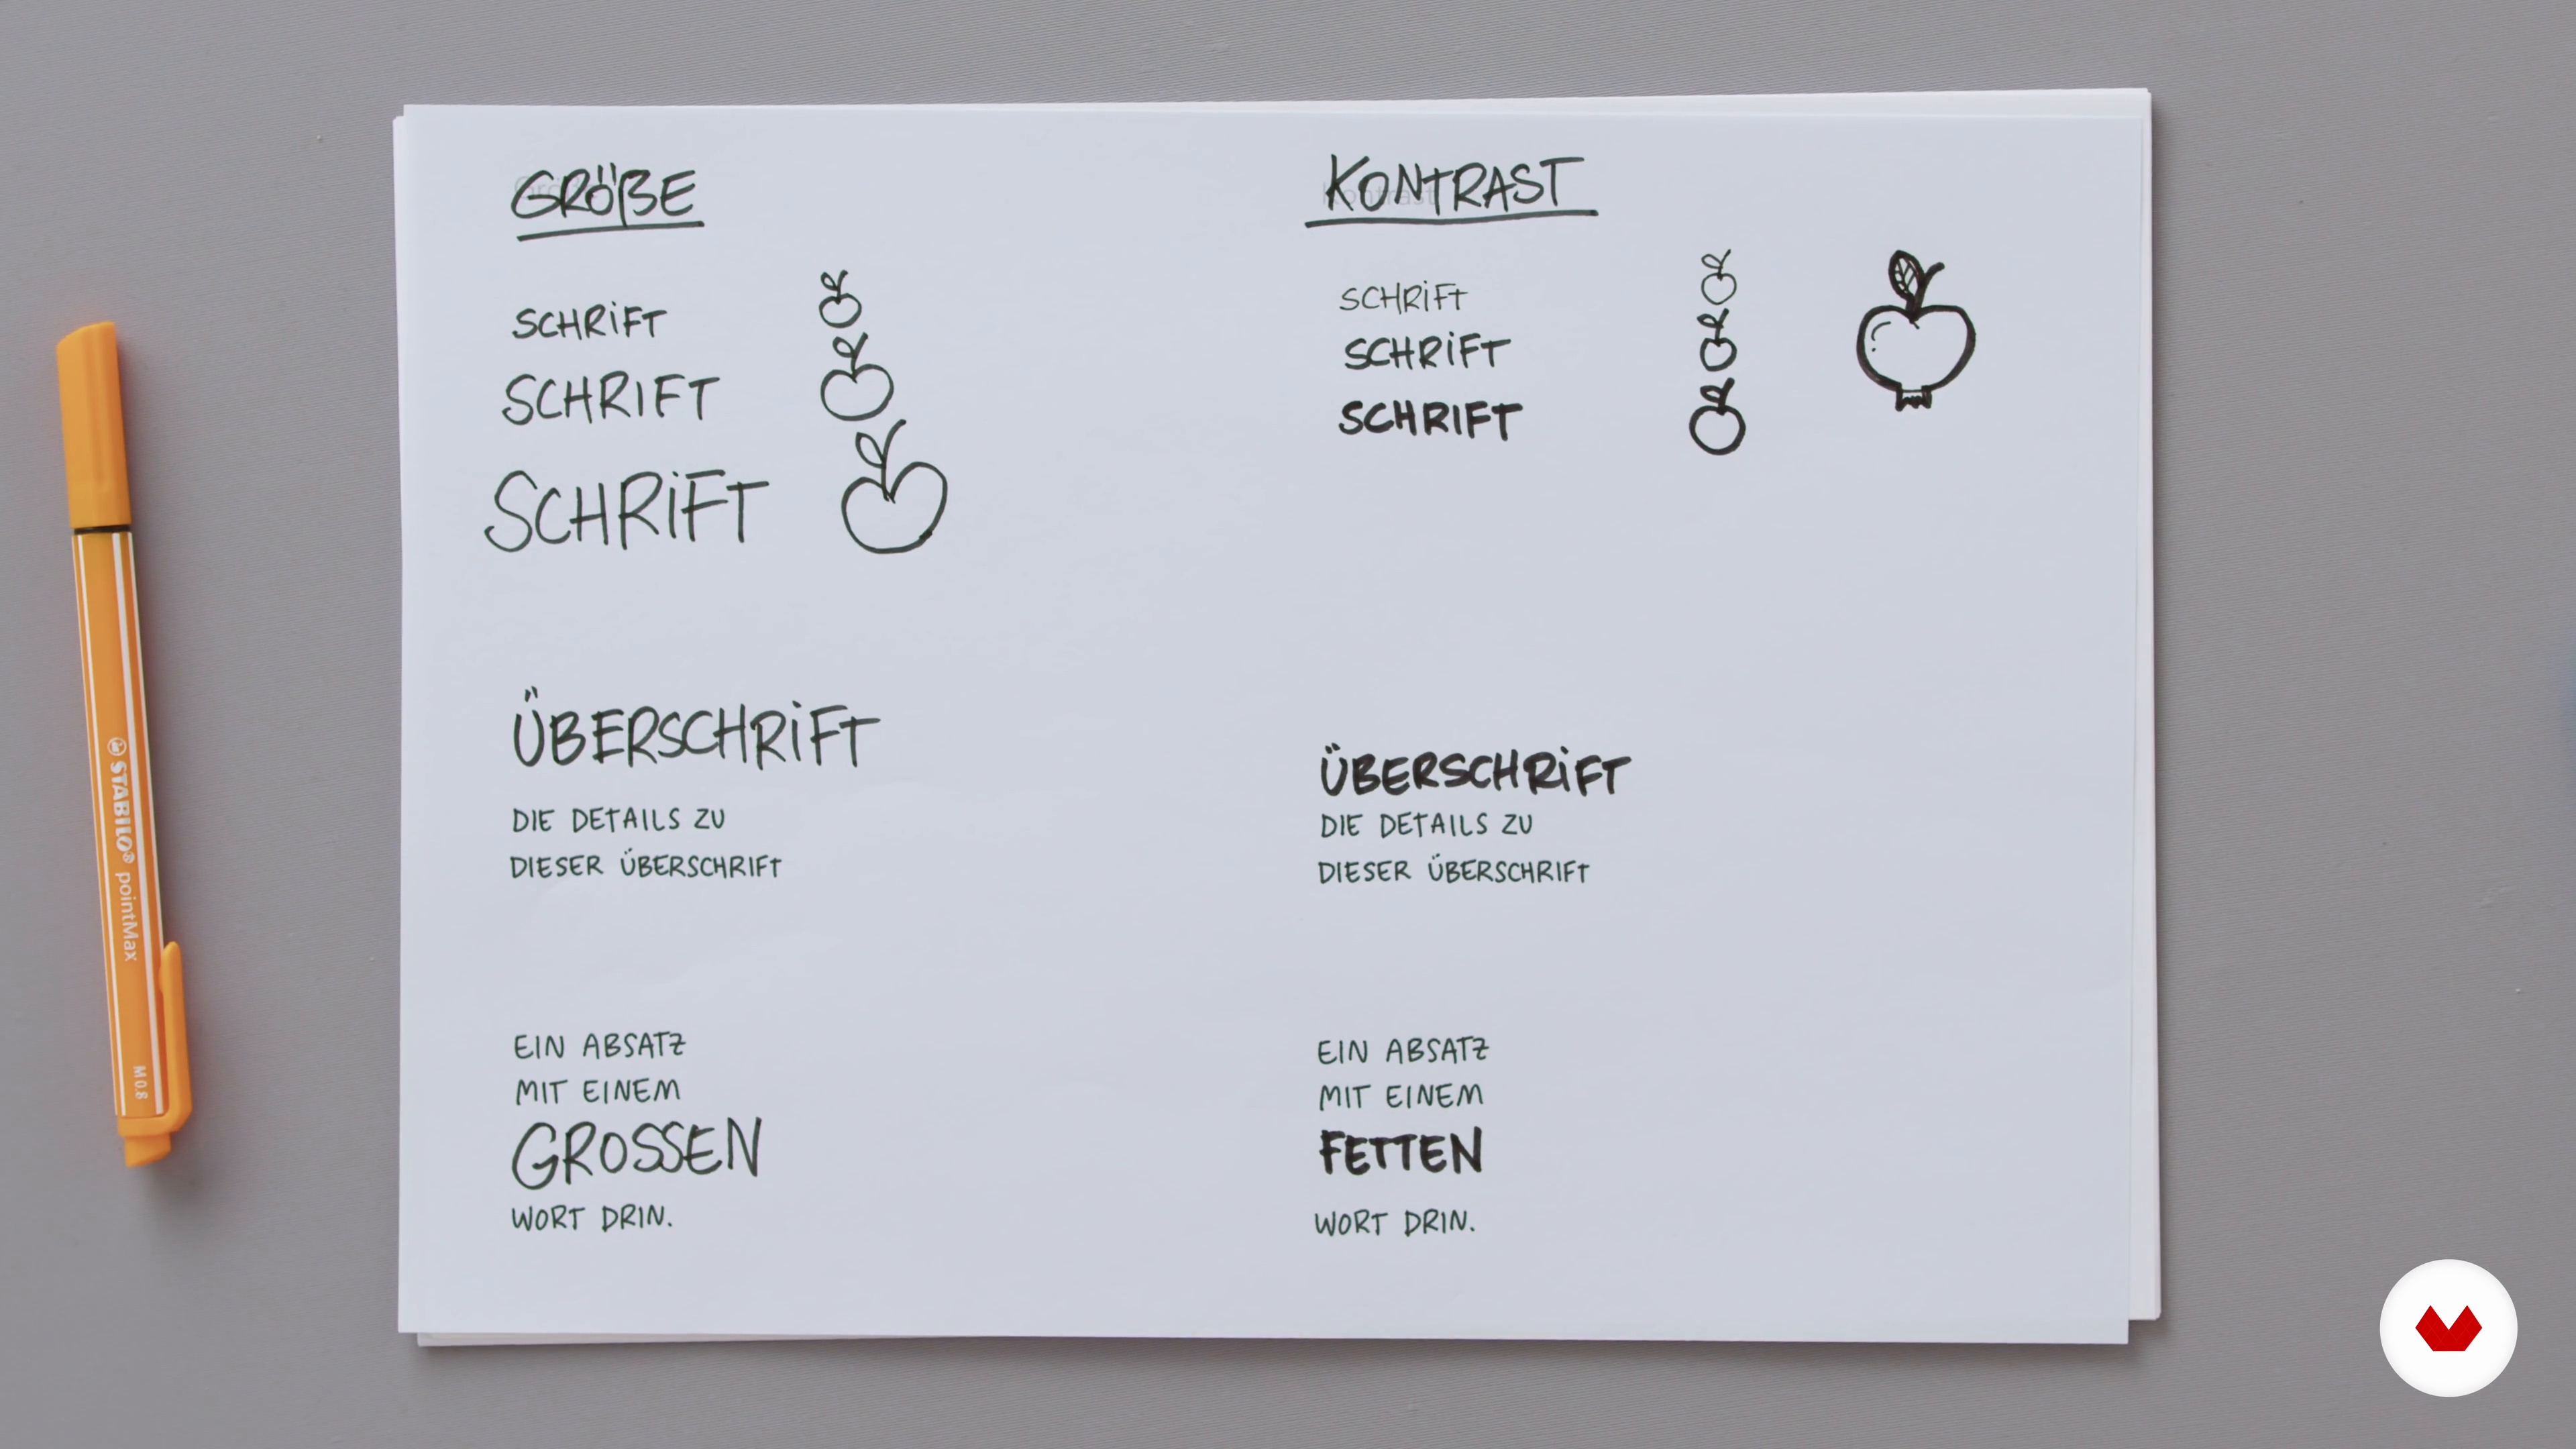 GRÖßE
SCHRIFT
SCHRIFT
SCHRIFT
ÜBERSCHRIFT
DIE DETAILS ZU
DIESER ÜBERSCHRIFT
EIN ABSATZ
MIT EINEM
GROSSEN
WORT DRIN.
KONTRAST
SCHRIFT
SCHRIFT
SCHRIFT
ÜBERSCHRIFT
DIE DETAILS ZU
DIESER ÜBERSCHRIFT
EIN ABSATZ
MIT EINEM
FETTEN
WORT DRIN.
STABILO® pointMax M 0.8